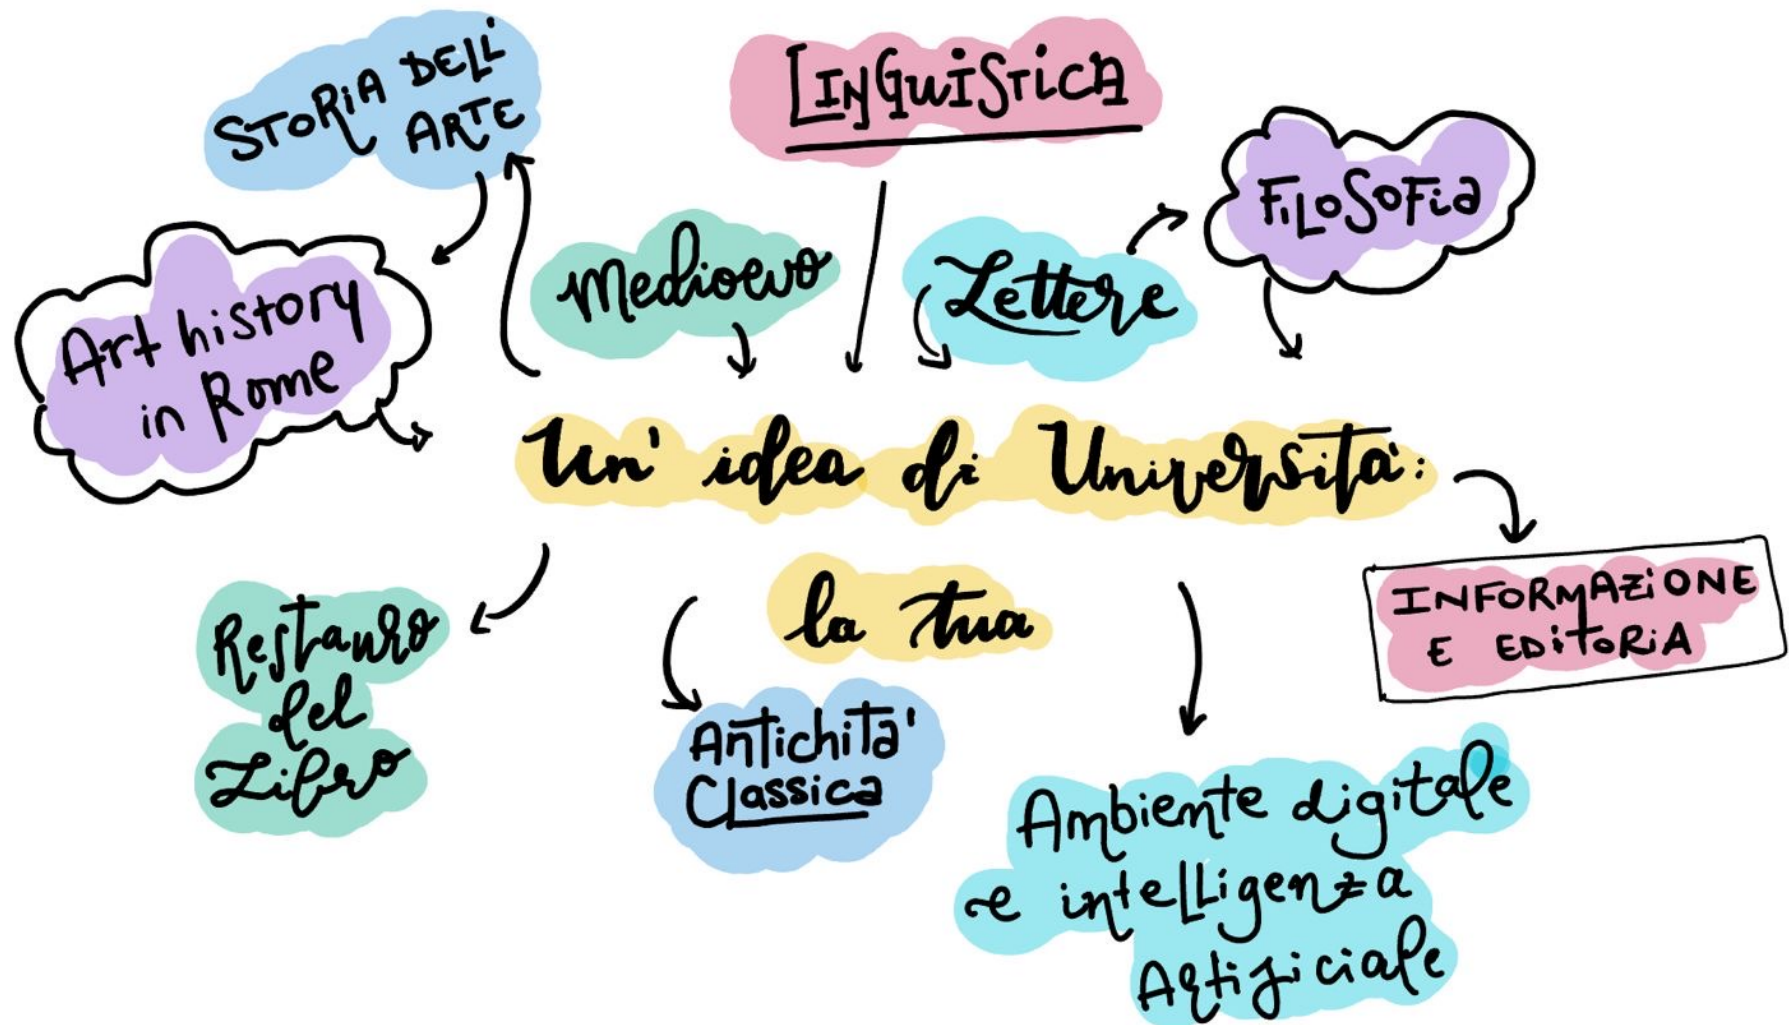 STORIA DELL'
ARTE
LINGUISTICA
FILOSOFia
Medioevo
Lettere
Art history
in Rome
Un' idea di Universita':
la tua
INFORMAZIONE
E EDITORIA
Restauro
del
Libro
Antichita'
Classica
Ambiente digitale
e intelligenza
Artificiale